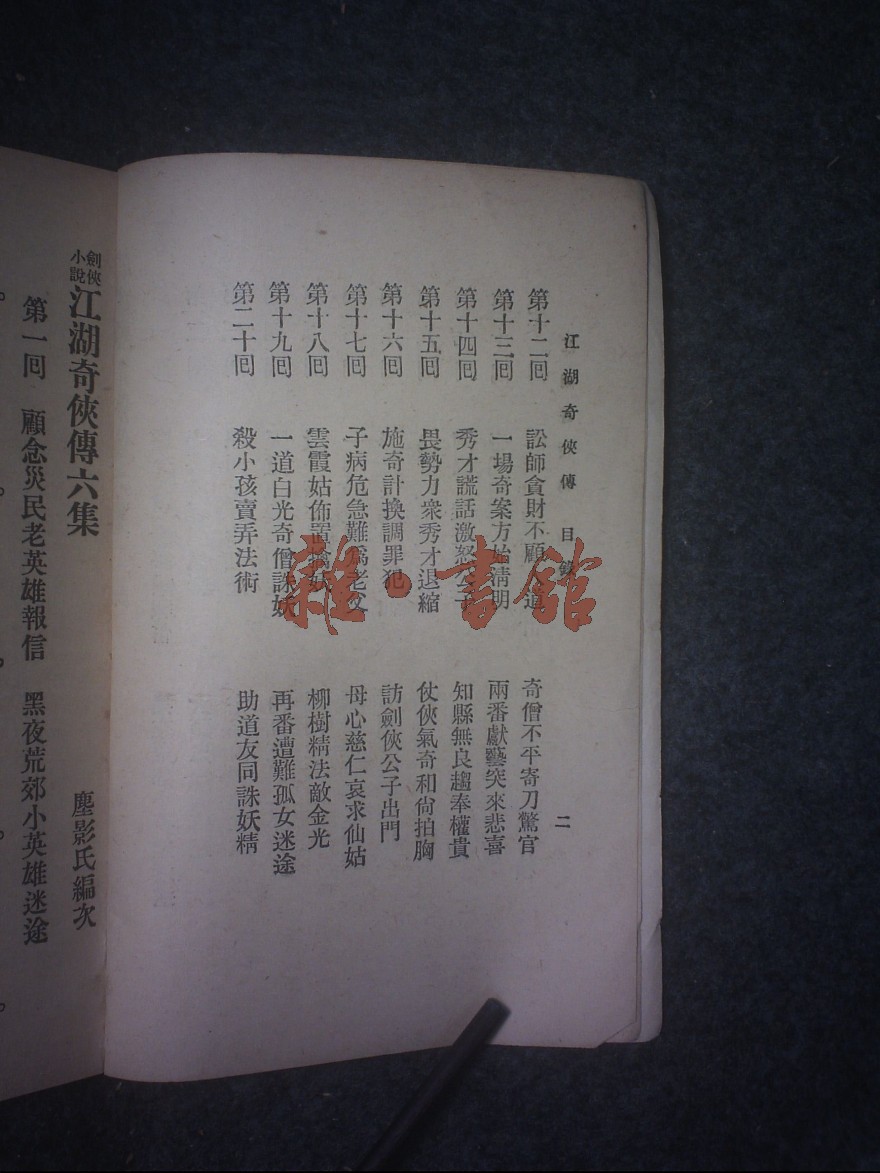 江湖奇俠傳 目錄 二
第十二回 訟師貪財不顧人道 奇僧不平寄刀驚官
第十三回 一場奇案方始淸明 兩番獻藝突來悲喜
第十四回 秀才謊話激怒公子 知縣無良趨奉權貴
第十五回 畏勢力衆秀才退縮 仗俠氣奇和尙拍胸
第十六回 施奇計換調罪犯 訪劍俠公子出門
第十七回 子病危急難爲老父 母心慈仁哀求仙姑
第十八回 雲霞姑佈置擒妖 柳樹精法敵金光
第十九回 一道白光奇僧誅妖 再番遭難孤女迷途
第二十回 殺小孩賣弄法術 助道友同誅妖精
劍俠小說 江湖奇俠傳六集
塵影氏編次
第一回 顧念災民老英雄報信 黑夜荒郊小英雄迷途
雜·書館